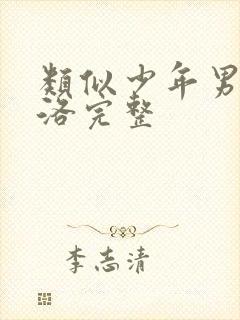 類似少年男
洛完整
李志清